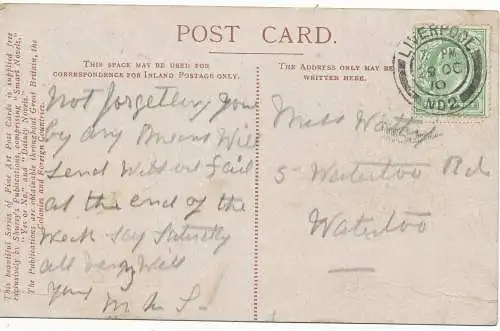 POST CARD.
THIS SPACE MAY BE USED FOR
CORRESPONDENCE FOR INLAND POSTAGE ONLY.
THE ADDRESS ONLY MAY BE
WRITTEN HERE.
This beautiful Series of Fine Art Post Cards is supplied free
exclusively by Shurey's Publications, comprising "Smart Novels,"
"Yes or No," and "Dainty Novels."
The Publications are obtainable throughout Great Britain, the
Colonies and Foreign Countries.
Not forgetting you
by any means Will
send without fail
at the end of the
week say Saturday
all very well
Yours
M A S
LIVERPOOL
OC
10
Miss
5 Waterloo Rd
Waterloo